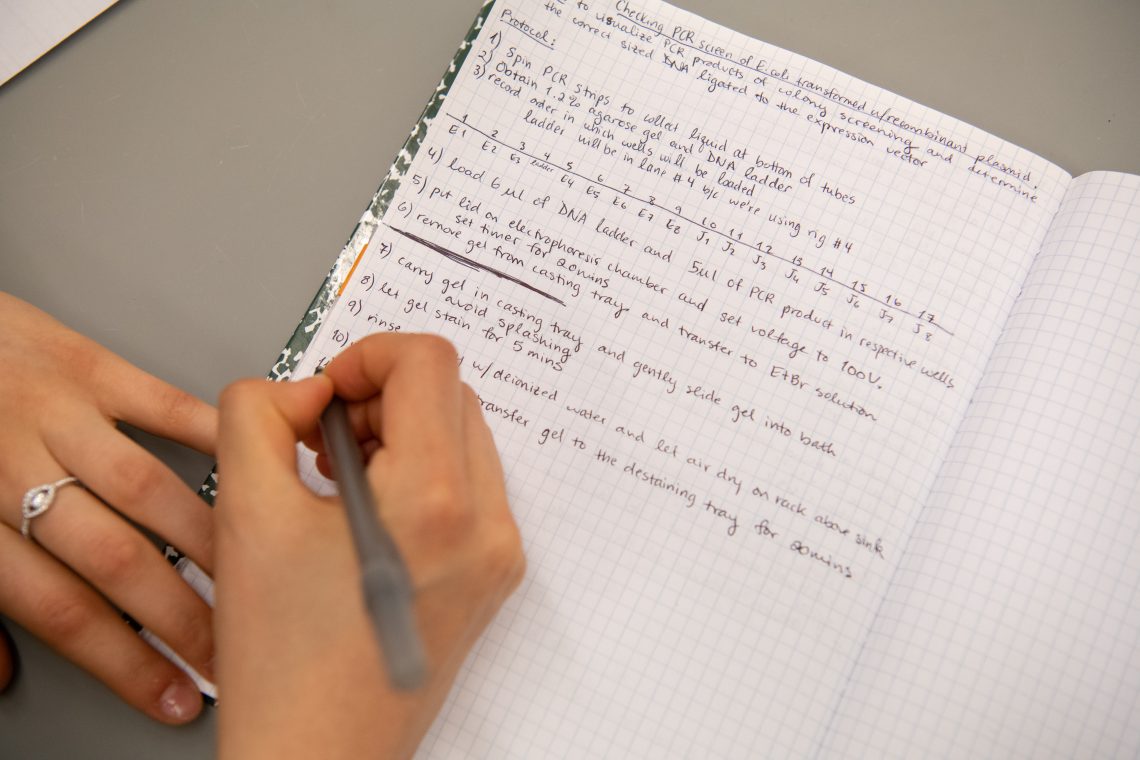 Checking PCR screen of E.coli transformed w/recombinant plasmid.
to visualize PCR products of colony screening and determine
the correct sized DNA ligated to the expression vector
Protocol:
1) Spin PCR strips to collect liquid at bottom of tubes
2) Obtain 1.2% agarose gel and DNA ladder
3) record order in which wells will be loaded
ladder will be in lane #4 b/c we're using rig #4
1 2 3 4 5 6 7 8 9 10 11 12 13 14 15 16 17
E1 E2 E3 ladder E4 E5 E6 E7 E8 J1 J2 J3 J4 J5 J6 J7 J8
4) load 6 ul of DNA ladder and 5ul of PCR product in respective wells
5) put lid on electrophoresis chamber and set voltage to 100V.
set timer for 20mins
6) remove gel from casting tray and transfer to EtBr solution
7) carry gel in casting tray and gently slide gel into bath
avoid splashing
8) let gel stain for 5 mins
9) rinse w/ deionized water and let air dry on rack above sink
10) transfer gel to the destaining tray for 20mins